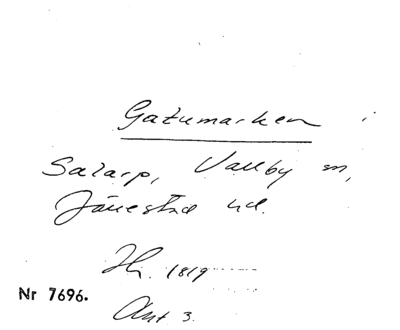 Gatumarken i
Salarp, Vallby sn,
Järrestad hd.
Hs. 1819
Nr 7696.
Akt 3.